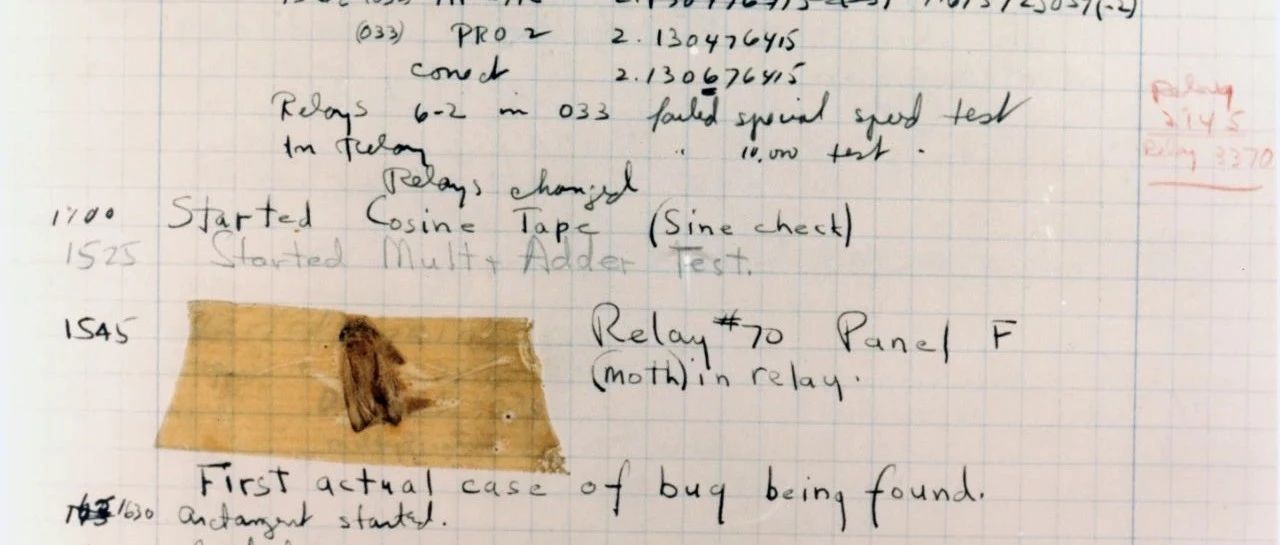 (033) PRO 2 2.130476415
conect 2.130676415
Relays 6-2 in 033 failed special speed test
In Relay " 10,000 test.
Relays changed
Relay
2145
Relay 3370
1700 Started Cosine Tape (Sine check)
1525 Started Mult+ Adder Test.
1545 Relay #70 Panel F
(moth) in relay.
First actual case of bug being found.
1630 arctangent started.